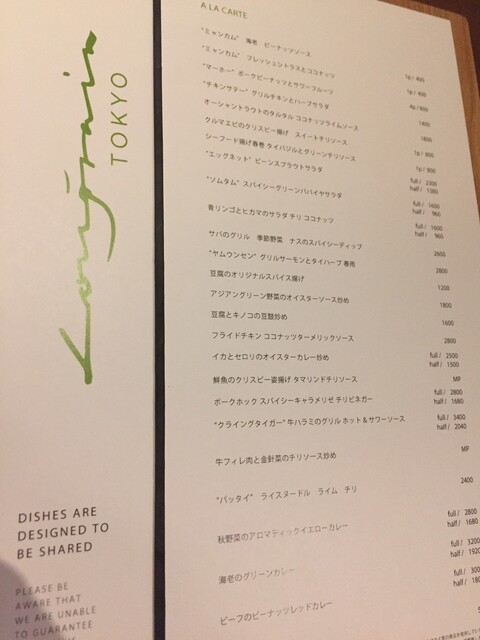 A LA CARTE
"ミャンカム" 海老 ピーナッツソース 1p / 400
"ミャンカム" フレッシュトラスとココナッツ 1p / 400
"マーホー" ポークピーナッツとサワーフルーツ 4p / 800
"チキンサテー" グリルチキンとハーブサラダ 1400
オーシャントラウトのタルタル ココナッツライムソース 1800
クルマエビのクリスピー揚げ スイートチリソース 1p / 800
シーフード揚げ春巻 タイバジルとグリーンチリソース 1p / 800
"エッグネット" ビーンスプラウトサラダ full / 2300
half / 1380
"ソムタム" スパイシーグリーンパパイヤサラダ full / 1600
half / 960
青リンゴとヒカマのサラダ チリ ココナッツ full / 1600
half / 960
サバのグリル 季節野菜 ナスのスパイシーディップ 2600
"ヤムウンセン" グリルサーモンとタイハーブ 春雨 2800
豆腐のオリジナルスパイス揚げ 1200
アジアングリーン野菜のオイスターソース炒め 1800
豆腐とキノコの豆鼓炒め 1600
フライドチキン ココナッツターメリックソース 2800
イカとセロリのオイスターカレー炒め full / 2500
half / 1500
鮮魚のクリスピー姿揚げ タマリンドチリソース MP
ポークホック スパイシーキャラメリゼ チリビネガー full / 2800
half / 1680
"クライングタイガー" 牛ハラミのグリル ホット & サワーソース full / 3400
half / 2040
牛フィレ肉と金針菜のチリソース炒め MP
"パッタイ" ライスヌードル ライム チリ 2400
秋野菜のアロマティックイエローカレー full / 2800
half / 1680
海老のグリーンカレー full / 3200
half / 1920
ビーフのピーナッツレッドカレー full / 300
half / 180
Longrain
TOKYO
DISHES ARE
DESIGNED TO
BE SHARED
PLEASE BE
AWARE THAT
WE ARE UNABLE
TO GUARANTEE